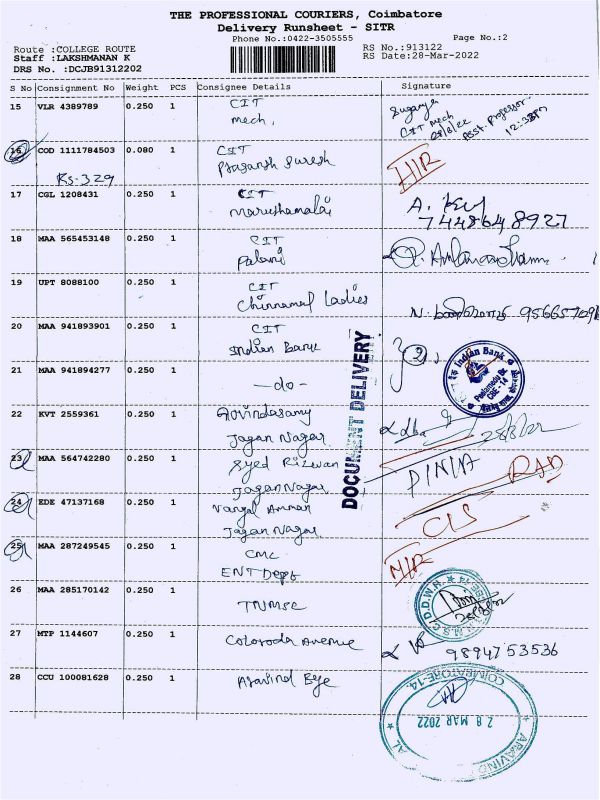 THE PROFESSIONAL COURIERS, Coimbatore
Delivery Runsheet - SITR
Phone No.:0422-3505555
Page No.:2
Route :COLLEGE ROUTE
RS No.:913122
Staff :LAKSHMANAN K
RS Date:28-Mar-2022
DRS No. :DCJB91312202
S No Consignment No Weight PCS Consignee Details Signature
15 VLR 4389789 0.250 1 CIT
mech,
CIT mech
Asst. Professor
16 COD 1111784503 0.080 1 CIT
Suresh
Rs-329
17 CGL 1208431 0.250 1 CIT
Maruthamalai
A.
7448648927
18 MAA 565453148 0.250 1 CIT
Palani
19 UPT 8088100 0.250 1 CIT
Chinnamal Ladies
N.
20 MAA 941893901 0.250 1 CIT
Indian Bank
21 MAA 941894277 0.250 1 -do-
Indian Bank
DOCUMENT DELIVERY
22 KVT 2559361 0.250 1 Govindasamy
Jagan Nagar
23 MAA 564742280 0.250 1 Syed Rizwan
Jagan Nagar
24 EDE 47137168 0.250 1 Vangal Amman
Jagan Nagar
CLS
25 MAA 287249545 0.250 1 CMC
ENT Dept
26 MAA 285170142 0.250 1 TNMSC
27 MTP 1144607 0.250 1 Colorado Avenue
9894753536
28 CCU 100081628 0.250 1 Aravind Eye
COIMBATORE-14.
28 MAR 2022
ARAVIND